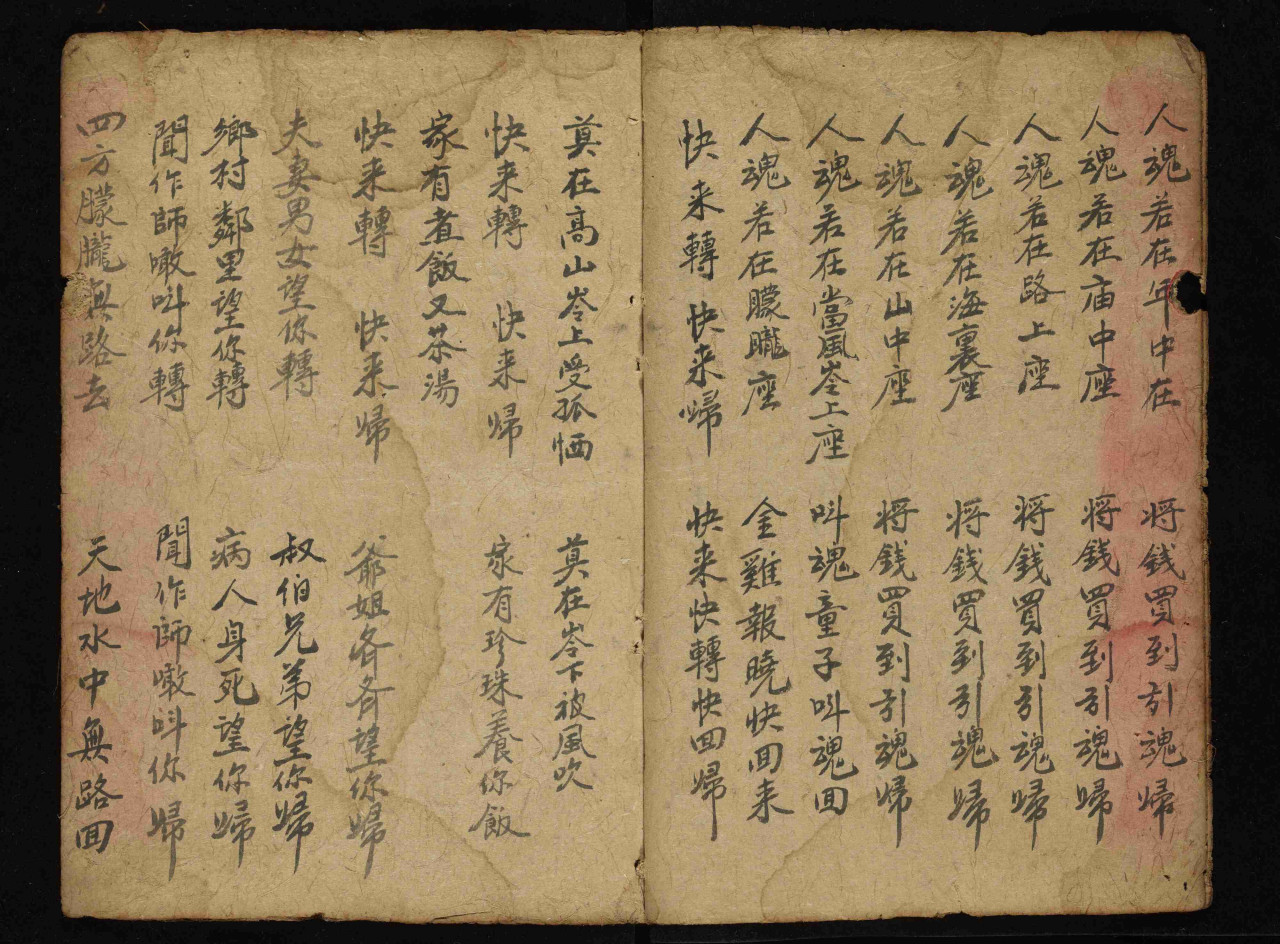 人魂若在年中在　将錢買到引魂歸
人魂若在庙中座　将錢買到引魂歸
人魂若在路上座　将錢買到引魂歸
人魂若在海裏座　将錢買到引魂歸
人魂若在山中座　将錢買到引魂歸
人魂若在當風岺上座　呌魂童子呌魂囬
人魂若在朦朧座　金雞報曉快囬来
快来轉快来歸　快来快轉快囬歸
莫在髙山岺上受孤恓　莫在岺下被風吹
快来轉　快来歸　家有珍珠養你飯
家有煮飯又茶湯
快来轉　快来歸　爺姐各各望你歸
夫妻男女望你轉　叔伯兄弟望你歸
鄉村鄰里望你轉　病人身死望你歸
聞作師噉呌你轉　聞作師噉呌你歸
四方朦朧無路去　天地水中無路囬